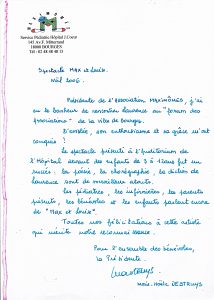 Service Pédiatrie Hôpital J.Cœur
145 Av.F. Mitterrand
18000 BOURGES
Tel : 02 48 48 48
Spectacle Max et Louis.
Noël 2006.
Présidente de l'Association MAXIMÔMES, j'ai
eu le bonheur de rencontrer Laurence au "forum des
associations" de la ville de Bourges.
D'emblée, son enthousiasme et sa grâce m'ont
conquise !
Le spectacle présenté à l'auditorium de
l'Hôpital devant des enfants de 3 à 11 ans fut un
succès. La poésie, la chorégraphie, la diction de
Laurence sont de merveilleux atouts.
Les pédiatres, les infirmières, les parents
présents, les bénévoles et les enfants parlent encore
de "Max et Louis".
Toutes nos félicitations à cette artiste
qui mérite notre reconnaissance.
Pour l'ensemble des bénévoles,
La Présidente.
Marie-Noële DESTRUYS